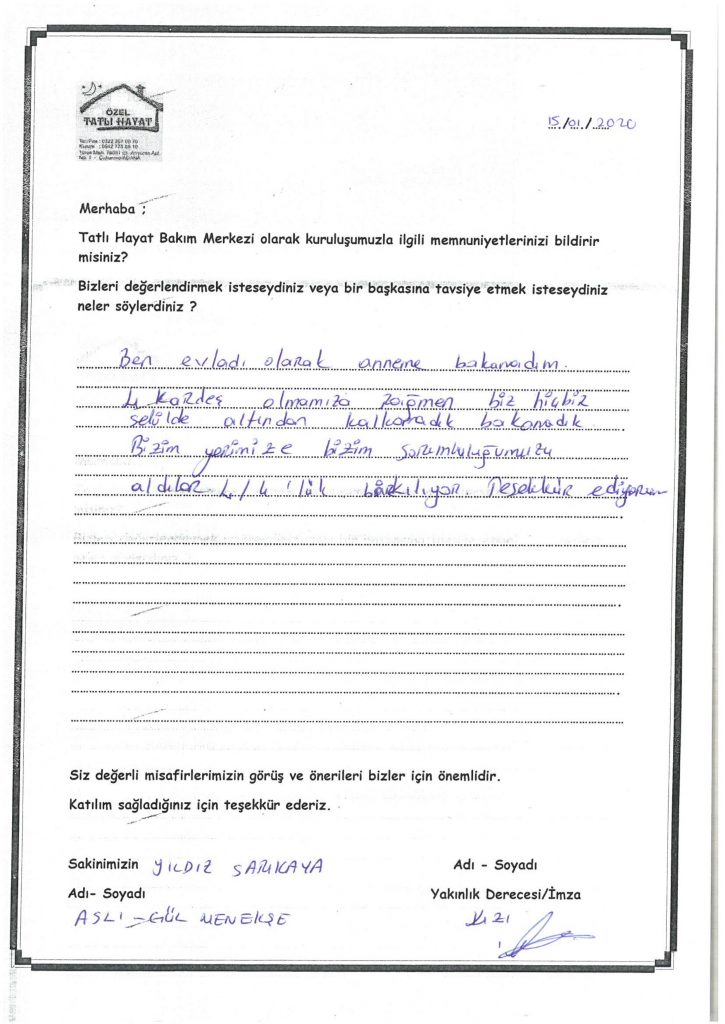 ÖZEL
TATLI HAYAT
15/01/2020
Merhaba ;
Tatlı Hayat Bakım Merkezi olarak kuruluşumuzla ilgili memnuniyetlerinizi bildirir
misiniz?
Bizleri değerlendirmek isteseydiniz veya bir başkasına tavsiye etmek isteseydiniz
neler söylerdiniz ?
Ben evladı olarak anneme bakamadım.
4 kardeş olmamıza rağmen biz hiçbir
şekilde altından kalkamadık bakamadık
Bizim yerimize bizim sorumluluğumuzu
aldılar 4/4 'lük bakılıyor. Teşekkür ediyorum
Siz değerli misafirlerimizin görüş ve önerileri bizler için önemlidir.
Katılım sağladığınız için teşekkür ederiz.
Sakinimizin YILDIZ SARIKAYA Adı - Soyadı
Adı- Soyadı Yakınlık Derecesi/İmza
ASLI - GÜL MENEKŞE KIZI